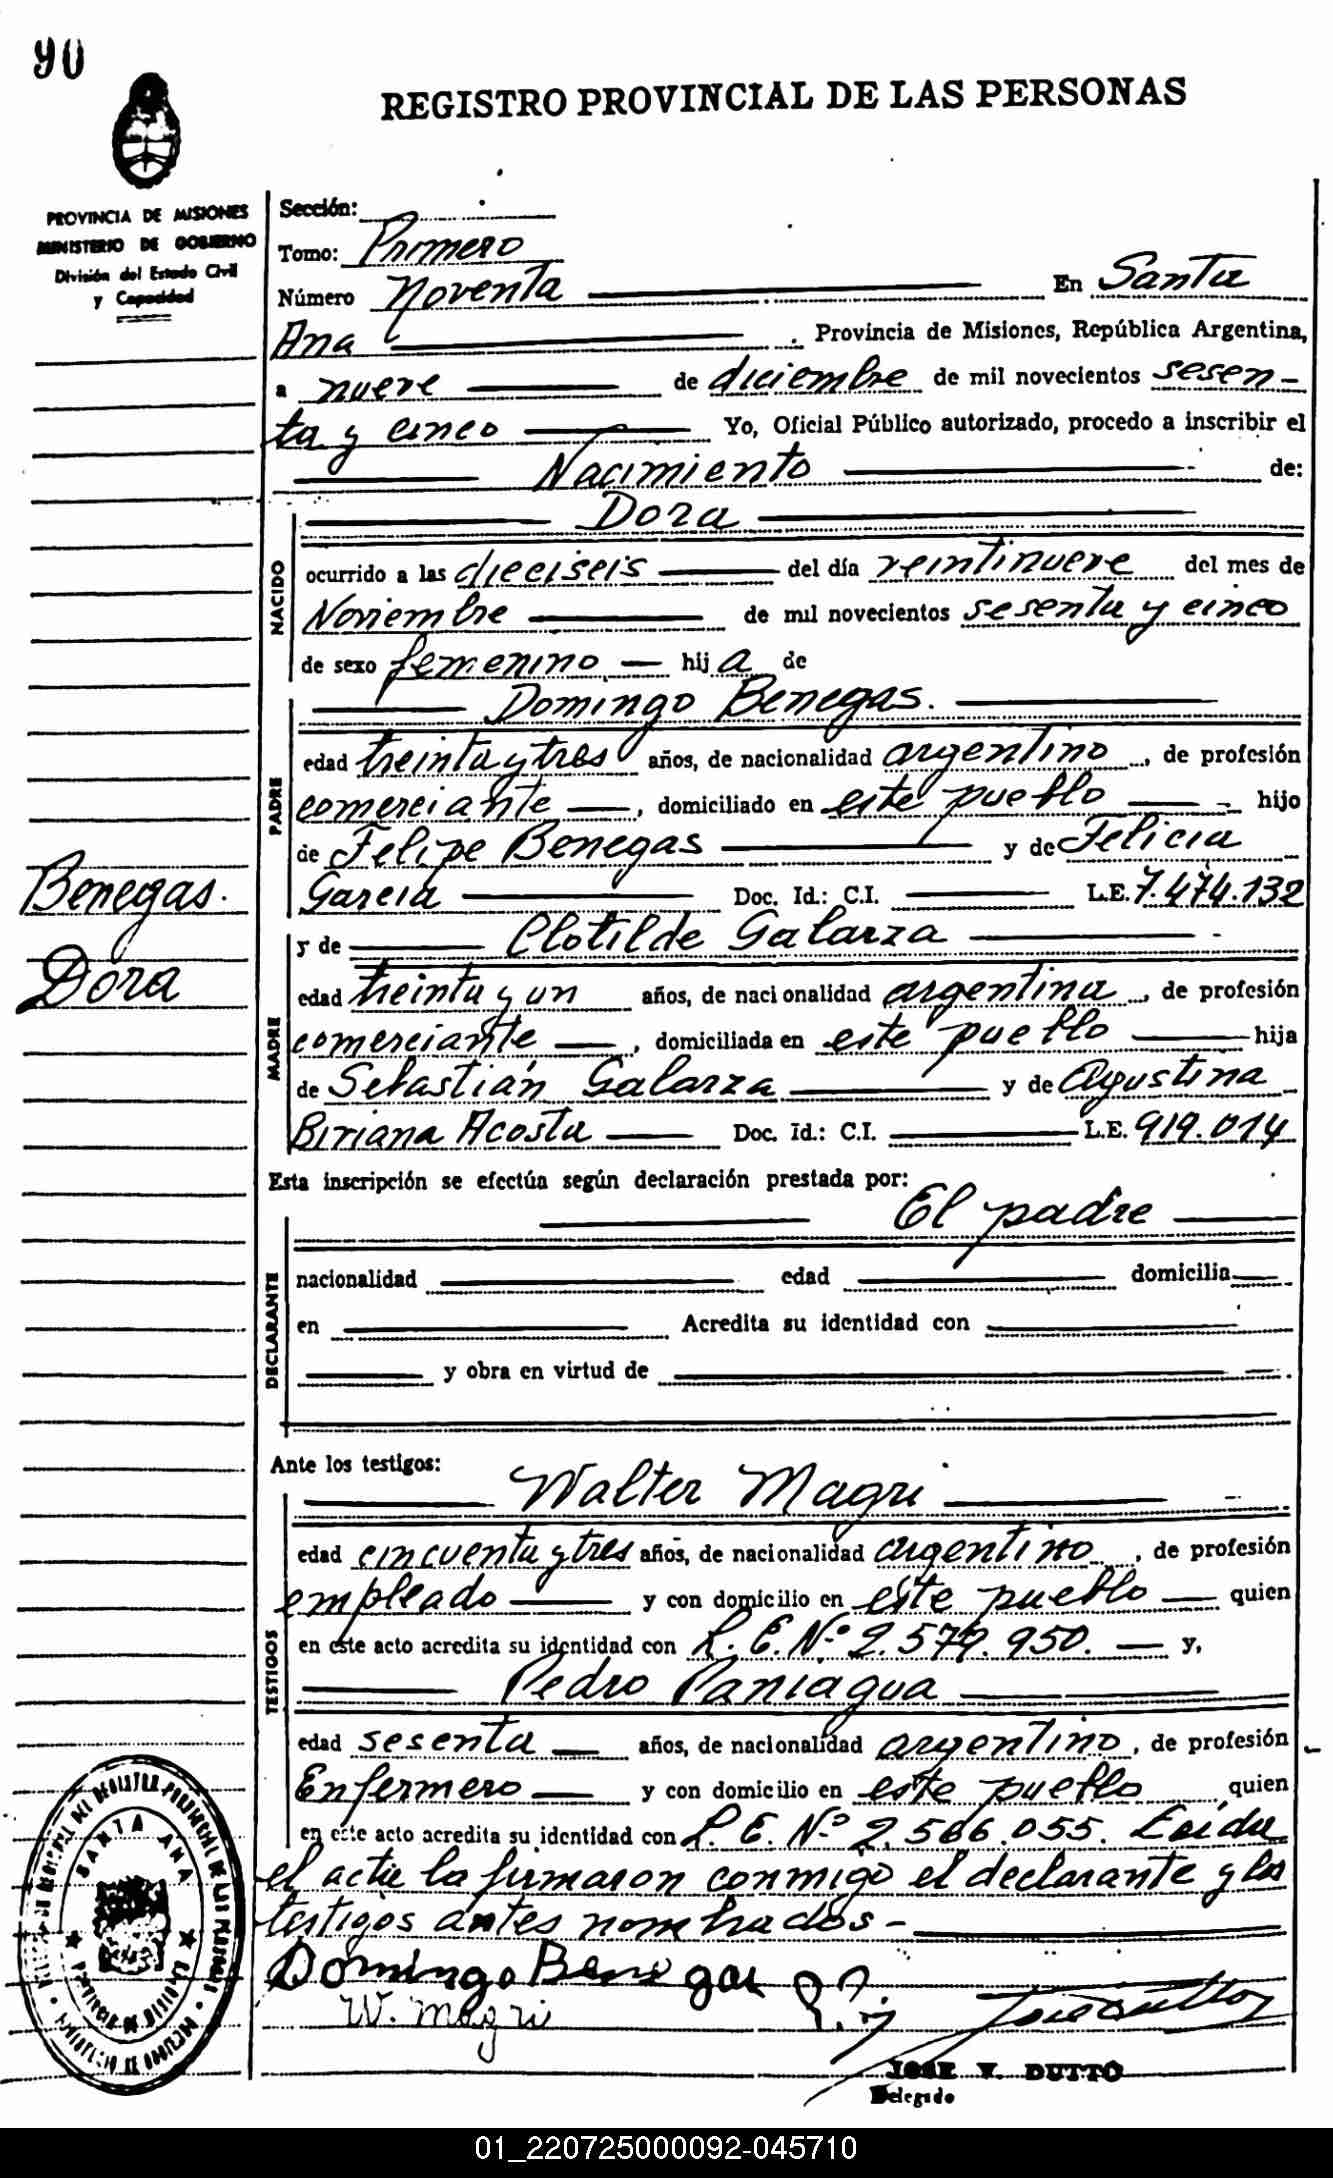 90
REGISTRO PROVINCIAL DE LAS PERSONAS
PROVINCIA DE MISIONES
MINISTERIO DE GOBIERNO
División del Estado Civil
y Capacidad
Sección:
Tomo: Primero
Número Noventa En Santa
Ana . Provincia de Misiones, República Argentina,
a nueve de diciembre de mil novecientos sesen-
ta y cinco Yo, Oficial Público autorizado, procedo a inscribir el
Nacimiento de:
Dora
NACIDO
ocurrido a las dieciseis del día veintinueve del mes de
Noviembre de mil novecientos sesenta y cinco
de sexo femenino — hija de
Domingo Benegas.
PADRE
edad treinta y tres años, de nacionalidad argentino, de profesión
comerciante —, domiciliado en este pueblo — hijo
de Felipe Benegas y de Felicia
García Doc. Id.: C.I. L.E. 7.474.132
Benegas.
Dora
y de Clotilde Galarza
MADRE
edad treinta y un años, de nacionalidad argentina, de profesión
comerciante —, domiciliada en este pueblo — hija
de Sebastián Galarza y de Agustina
Biriana Acosta Doc. Id.: C.I. L.E. 919.014
Esta inscripción se efectúa según declaración prestada por:
El padre
DECLARANTE
nacionalidad edad domicilia
en Acredita su identidad con
y obra en virtud de
Ante los testigos:
Walter Magri
TESTIGOS
edad cincuenta y tres años, de nacionalidad argentino, de profesión
empleado y con domicilio en este pueblo — quien
en este acto acredita su identidad con L.E. Nº 2.579.950. — y,
Pedro Paniagua
edad sesenta — años, de nacionalidad argentino, de profesión
Enfermero — y con domicilio en este pueblo quien
en este acto acredita su identidad con L.E. Nº 2.566.055. Leída
el acta la firmaron conmigo el declarante y los
testigos antes nombrados-
Domingo Benegas
W. Magri
JOSE V. DUTTO
Delegado
SANTA ANA
PROVINCIA DE MISIONES
01_220725000092-045710